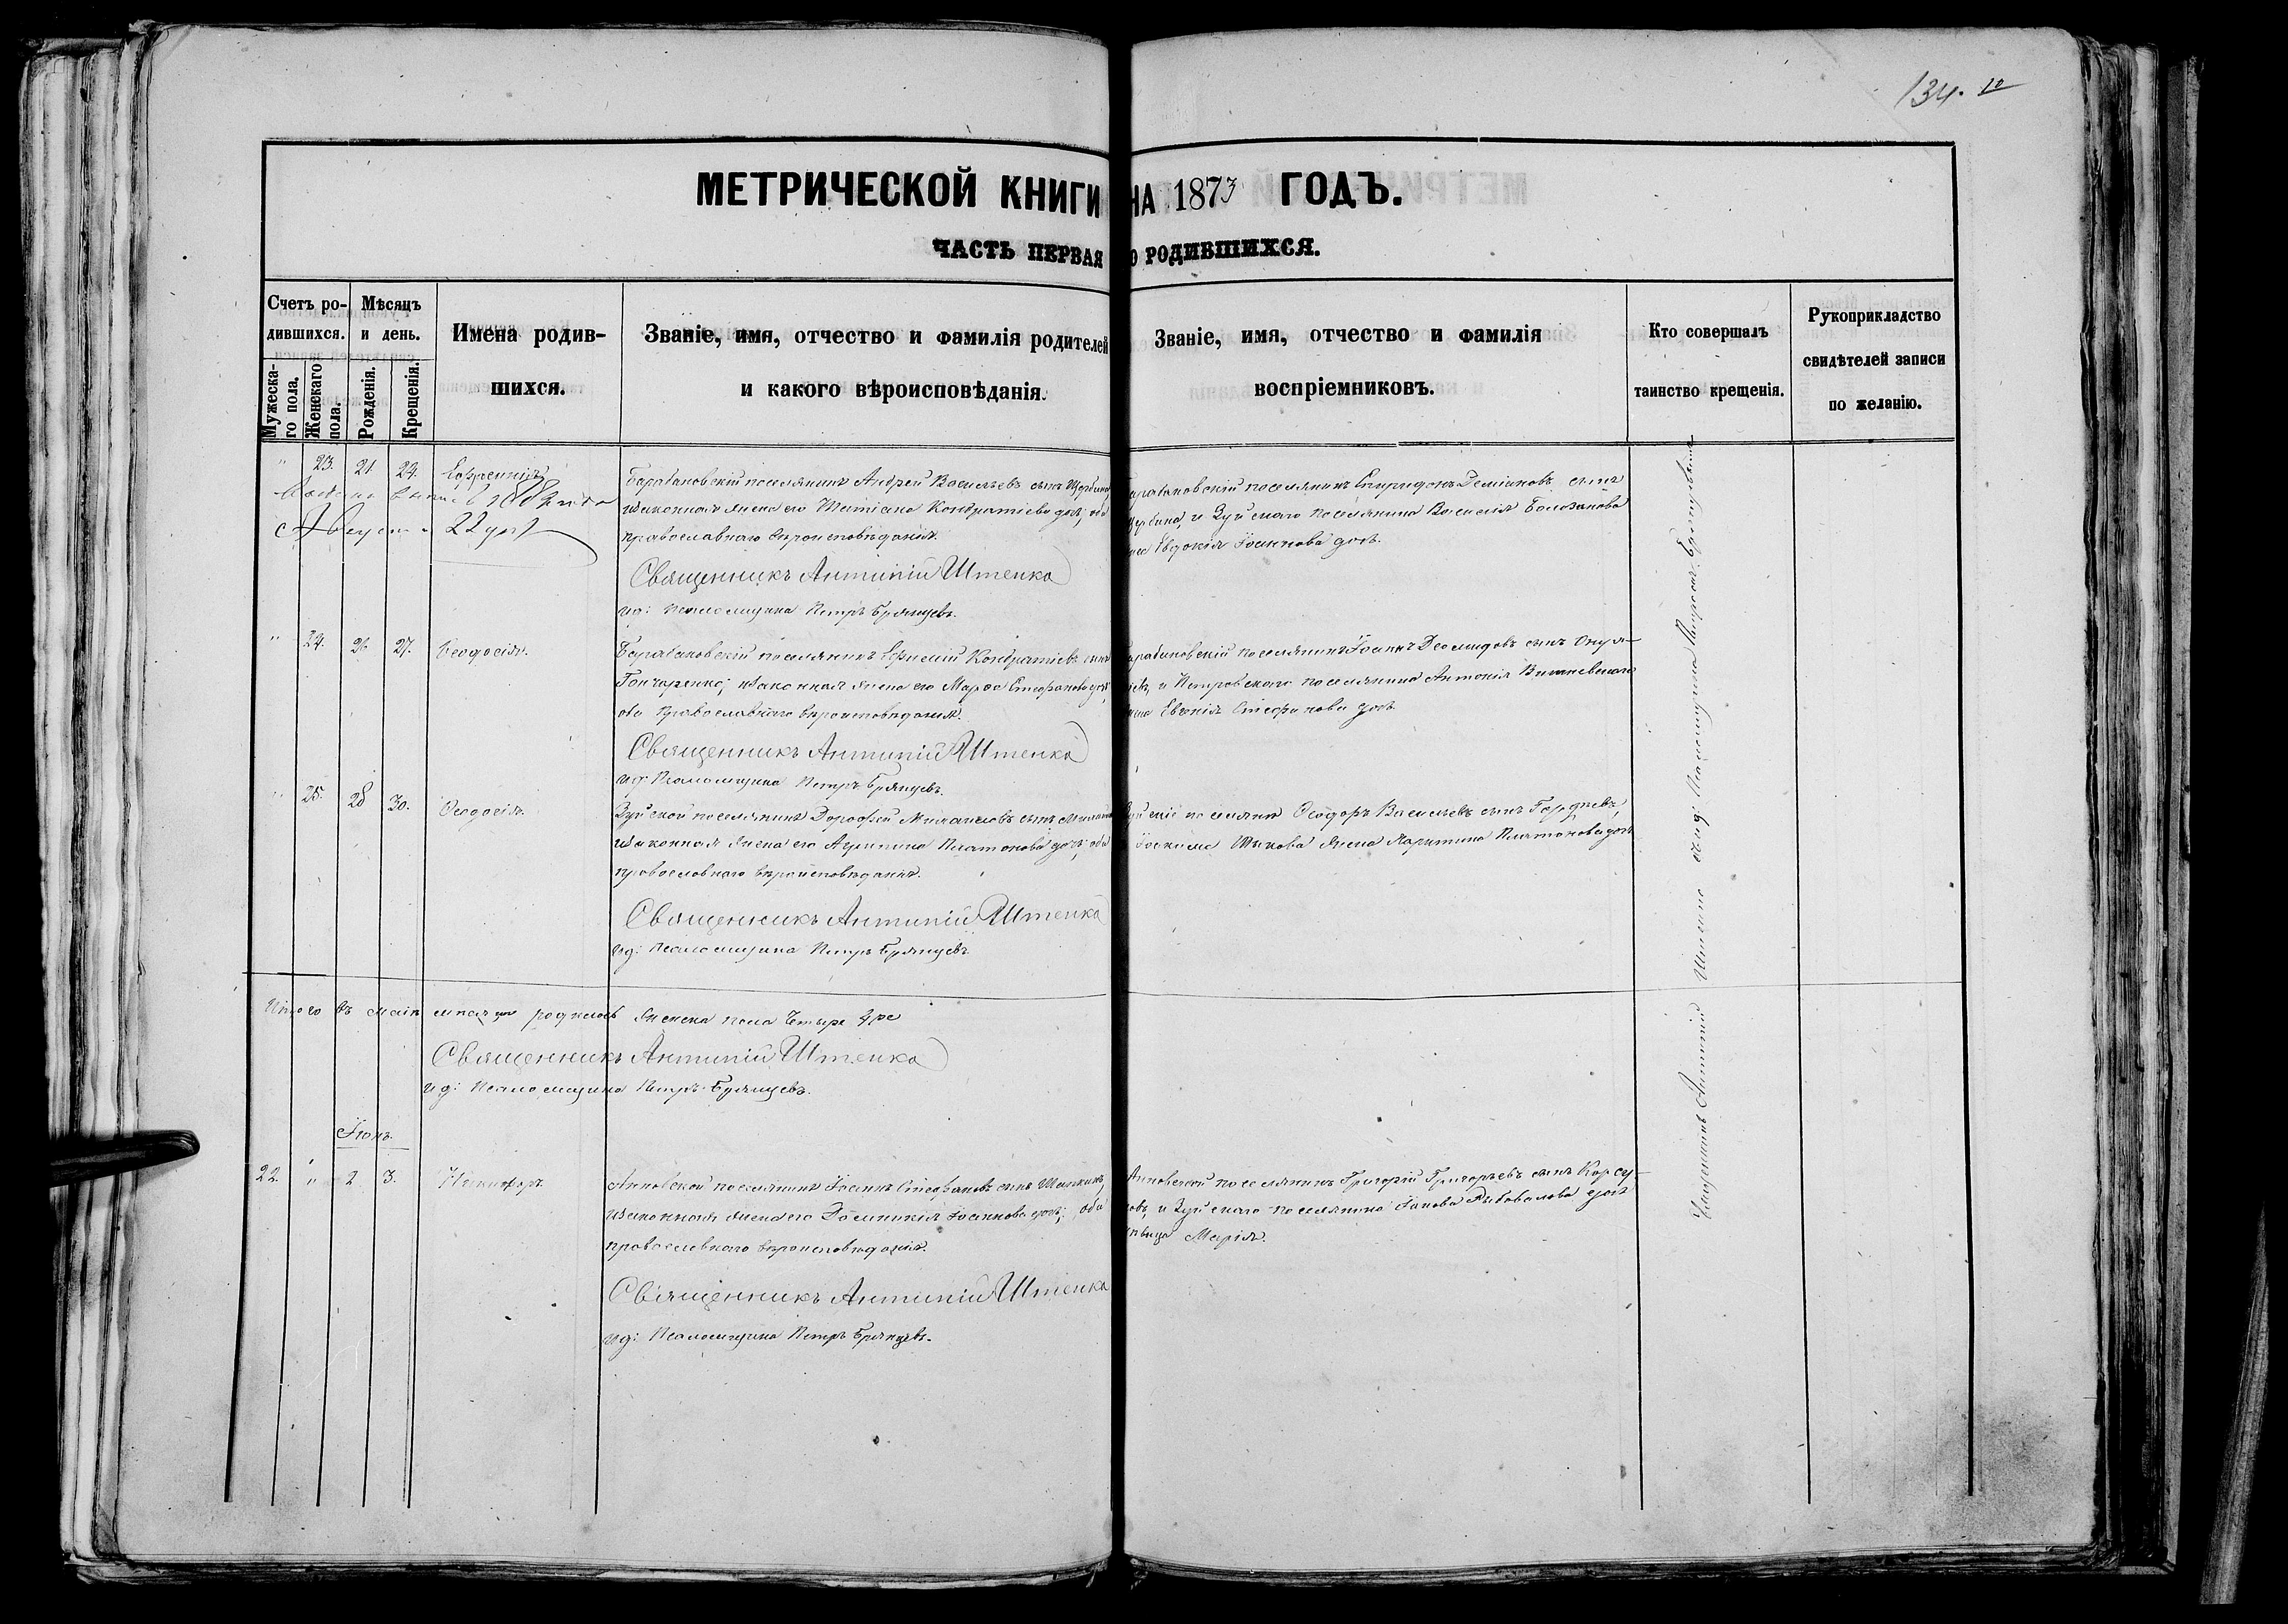 134. 10
МЕТРИЧЕСКОЙ КНИГИ НА 1873 ГОДЪ.
ЧАСТЬ ПЕРВАЯ О РОДИВШИХСЯ.
Счетъ ро-
дившихся.
Мужеска-
го пола.
Женскаго
пола.
Мѣсяцъ
и день.
Рожденія.
Крещенія.
Имена родив-
шихся.
Званіе, имя, отчество и фамилія родителей
и какого вѣроисповѣданія.
Званіе, имя, отчество и фамилія
воспріемниковъ.
Кто совершалъ
таинство крещенія.
Рукоприкладство
свидѣтелей записи
по желанію.
" 23. 21. 24.
Августа 22 дня
Барабановскій поселянинъ Андрей Васильевъ сынъ Щербина,
и законная жена его Татіана Кондратіева дочь; оба
православнаго вѣроисповѣданія.
Священникъ Антипій Штепко
ид: Псаломщика Петръ Брянцевъ.
арабановскій поселянинъ Спиридонъ Деміановъ сынъ
Щербина, и Зуйскаго поселянина Василія
жена Евдокія Іоаннова дочь.
" 24. 26 27. Феодосія.
Барабановскій поселянинъ Ефимій Кондратіевъ сынъ
Гончаренко; и законная жена его Марфа Стефанова дочь
оба Православнаго вѣроисповѣданія.
Священникъ Антипій Штепко
ид: Псаломщика Петръ Брянцевъ.
арабановскій поселянинъ Іоаннъ Деомидовъ сынъ
и Петровскаго поселянина Антонія Вишневскаго
жена Евгенія Стефанова дочь.
" 25. 28 30. Феодосія.
Зуйской поселянинъ Дорофей Михаиловъ сынъ
и законная жена его Агрипина Платонова дочь; оба
православнаго вѣроисповѣданія.
Священникъ Антипій Штепко
ид: Псаломщика Петръ Брянцевъ.
поселянинъ Феодоръ Васильевъ сынъ Гордѣевъ,
жена Харитина Платонова дочь
Итого въ маѣ мѣсяцѣ родилось женска пола Четыре
Священникъ Антипій Штепко
ид: Псаломщика Петръ Брянцевъ.
Іюнь.
22. " 2 3. Никифоръ
Анновской поселянинъ Іоаннъ Стефановъ сынъ
и законная жена его Домникія Іоаннова дочь; оба
православнаго вѣроисповѣданія.
Священникъ Антипій Штепко
ид: Псаломщика Петръ Брянцевъ.
Анновской поселянинъ Григорій Григорьевъ сынъ Корсу-
новъ, и Зуйскаго поселянина Іакова Рыбовалова дочь
дѣвица Марія.
Священникъ Антипій Штепко и ид: Псаломщика Петръ Брянцевъ